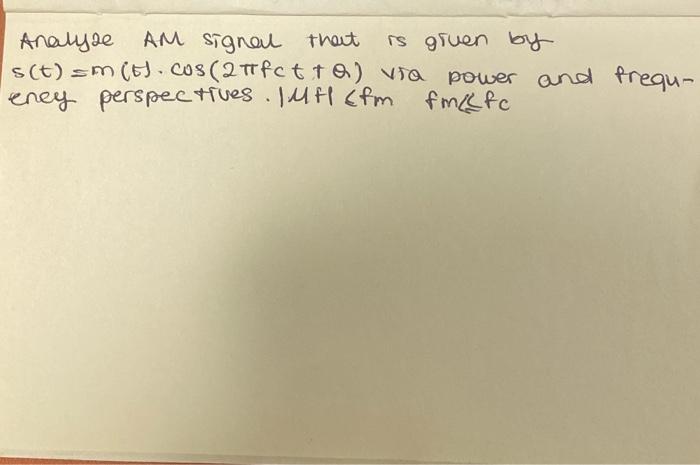 Analyse AM signal that is given by
s(t) = m(t). cos(2πfct + θ) via power and frequ-
ency perspectives. |Mf| <fm fm≪fc